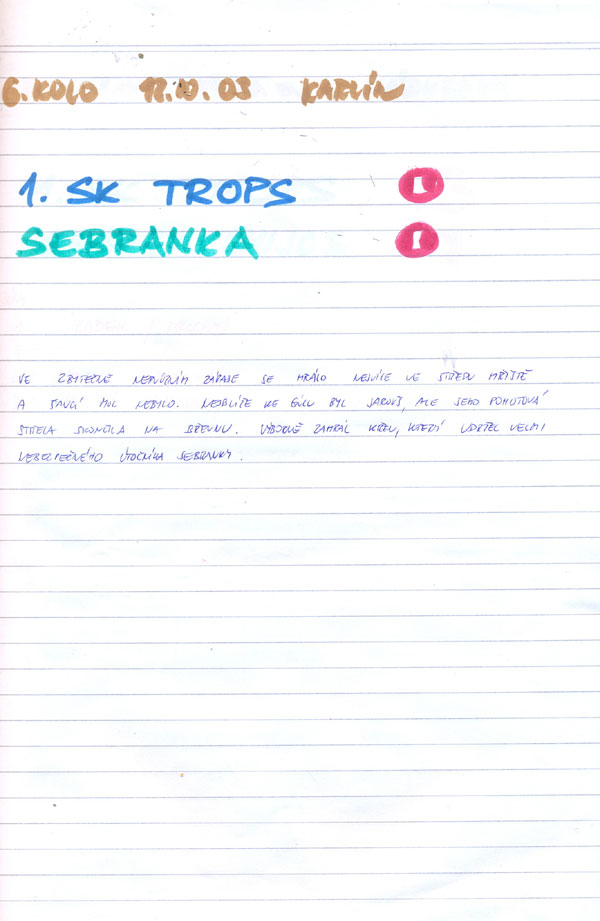 6. KOLO 12.10.03 KARLÍN
1. SK TROPS 0
SEBRANKA 0
VE ZBYTEČNĚ NERVÓZNÍM ZÁPASE SE HRÁLO NEJVÍCE VE STŘEDU HŘIŠTĚ
A ŠANCÍ MOC NEBYLO. NEJBLÍŽE KE GÓLU BYL JAROUŠ, ALE JEHO POHOTOVÁ
STŘELA SKONČILA NA BŘEVNU. VÝBORNĚ ZAHRÁL KŘEN, KTERÝ UDRŽEL VELMI
NEBEZPEČNÉHO ÚTOČNÍKA SEBRANKY.